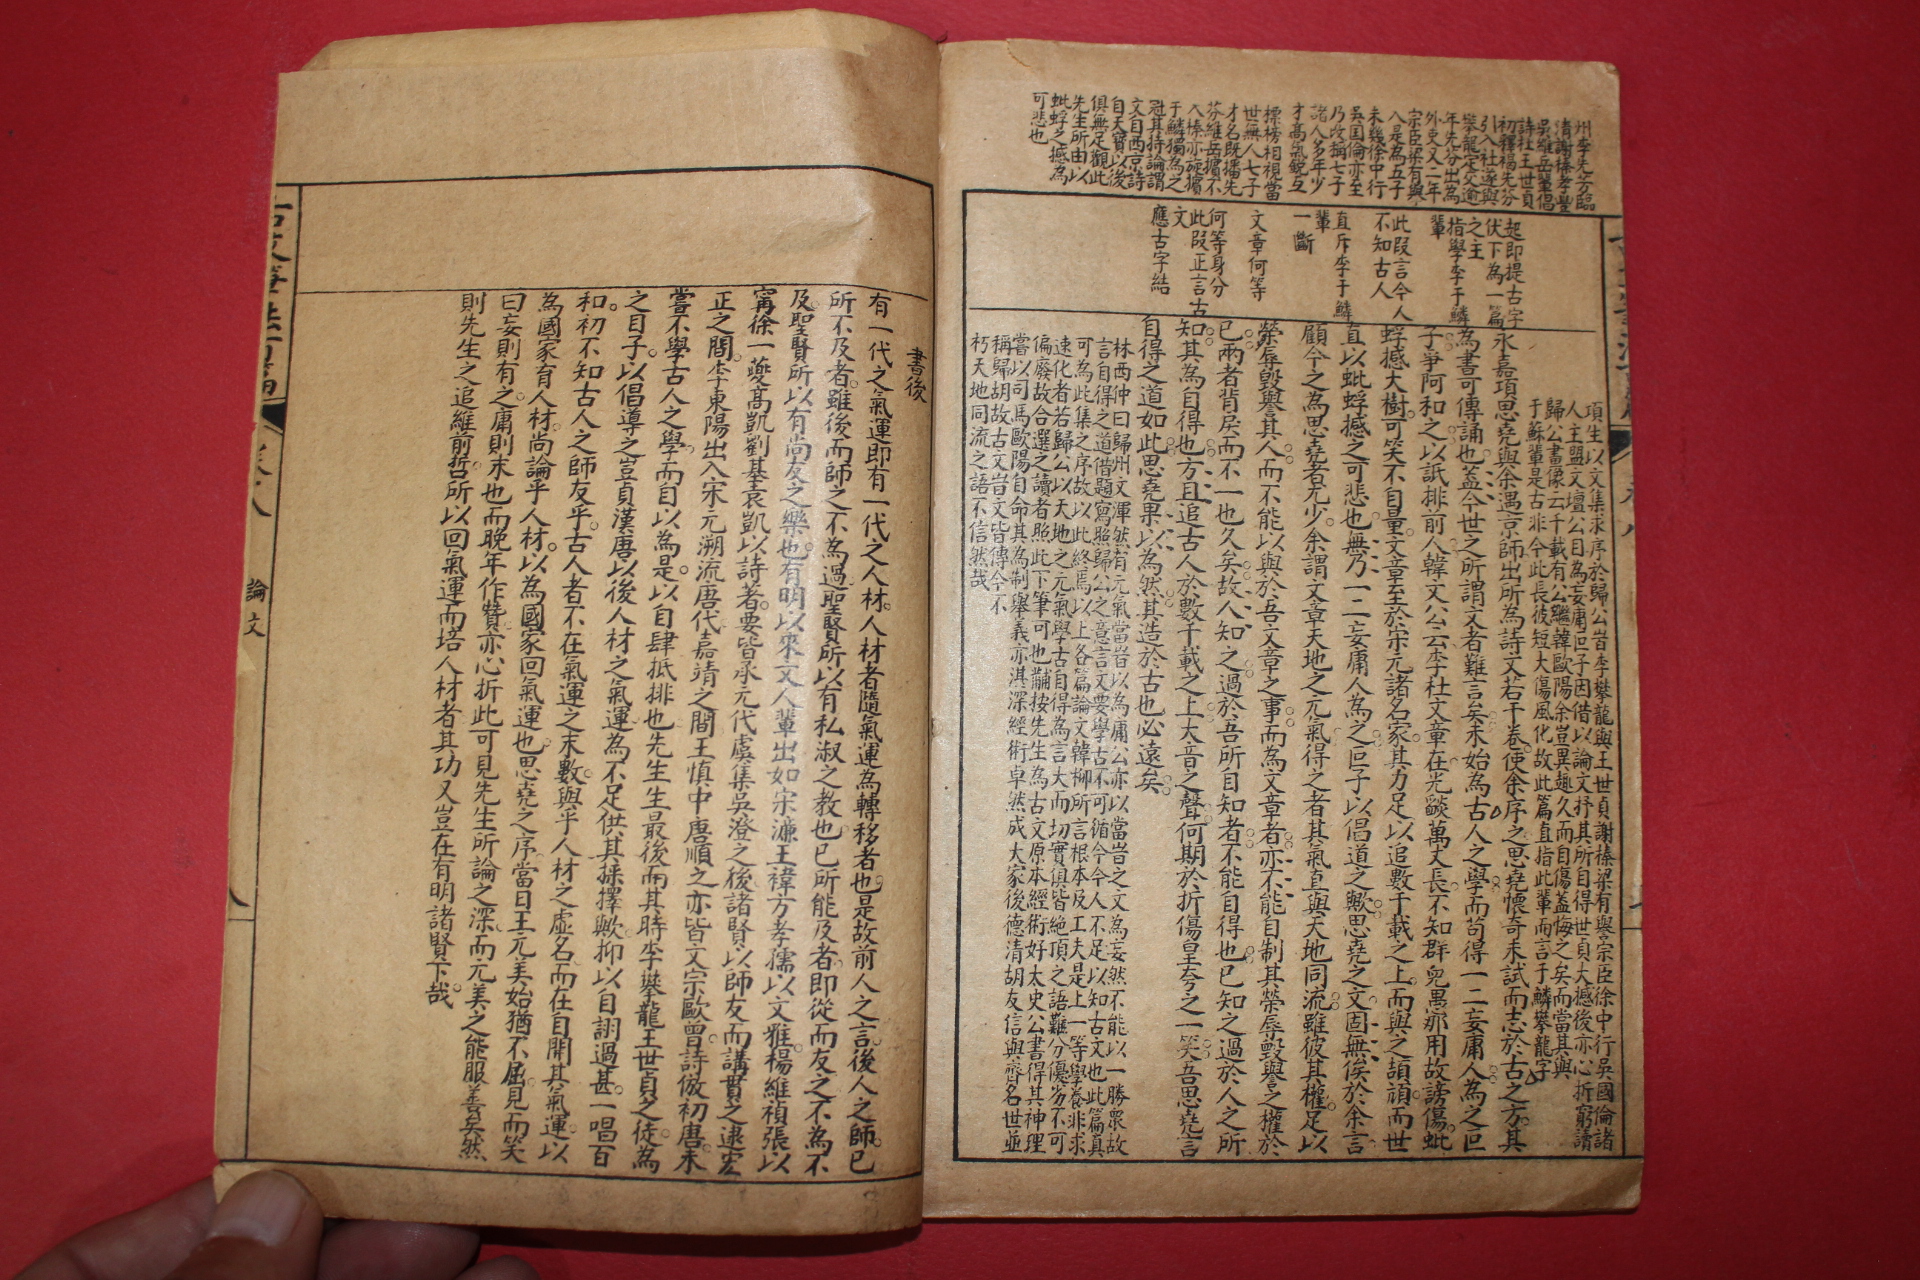 州李先芳臨
清謝榛孝豐
吳維岳輩倡
詩社王世貞
初釋褐先芳
引入社遂與
攀龍定交逾
年先芳出為
外吏又二年
宗臣梁有譽
入是為五子
未幾徐中行
吳国倫亦至
乃改稱七子
諸人多年少
才高氣銳互
標榜相視當
世無人七子
才名既播先
芬維岳擯不
入榛亦旋擯
于鱗獨為之
冠其持論謂
文自西京詩
自天寶以後
俱無足觀此
先生所由以
蚍蜉之撼為
可悲也
起即提古字
伏下為一篇
之主
指學李于鱗
輩
此段言今人
不知古人
直斥李于鱗
輩
一斷
文章何等
何等身分
此段正言古
文
應古字結
項生以文集求序於歸公昔李攀龍與王世貞謝榛梁有譽宗臣徐中行吳國倫諸
人主盟文壇公目為妄庸巨子因借以論文抒其所自得世貞大憾後亦心折窮讀
歸公畫像云千載有公繼韓歐陽余豈異趨久而自傷蓋悔之矣而當其與
于蘇輩是古非今此長彼短大傷風化故此篇直指此輩而言于鱗攀龍字
永嘉項思堯與余遇京師出所為詩文若干卷使余序之思堯懷奇未試而志於古之方其
為書可傳誦也蓋今世之所謂文者難言矣未始為古人之學而苟得一二妄庸人為之巨
子爭附和之以詆排前人韓文公云李杜文章在光燄萬丈長不知群兒愚那用故謗傷蚍
蜉撼大樹可笑不自量文章至於宋元諸名家其力足以追數千載之上而與之頡頏而世
直以蚍蜉撼之可悲也無乃一二妄庸人為之巨子以倡道之歟思堯之文固無俟於余言
顧今之為思堯者尤少余謂文章天地之元氣得之者其氣直與天地同流雖彼其權足以
榮辱毀譽其人而不能以與於吾文章之事而為文章者亦不能自制其榮辱毀譽之權於
已兩者背戾而不一也久矣故人知之過於吾所自知者不能自得也已知之過於人之所
知其為自得也方且追古人於數千載之上大音之聲何期於折傷皇夸之一笑吾思堯言
自得之道如此思堯果以為然其造於古也必遠矣
林西仲曰歸州文渾然有元氣當昔以為庸公亦以當昔之文為妄然不能以一勝眾故
言自得之道借題寫照歸公之意言文要學古不可循今今人不足以知古文也此篇真
可為此集之序故以此終焉以上各篇論文韓柳所言根本及工夫是上一等學養非求
速化者若歸公以天地之元氣學古自得為言大而切實俱皆絕頂之語難分優劣不可
偏廢故合選之讀者照此下筆可也黼按先生為古文原本經術好太史公書得其神理
嘗以司馬歐陽自命其為制舉義亦湛深經術卓然成大家後德清胡友信與齊名世並
稱歸胡故古文昔文皆傳今不
朽天地同流之語不信然哉
論文
書後
有一代之氣運即有一代之人材人材者隨氣運為轉移者也是故前人之言後人之師已
所不及者雖後而師之不為過聖賢所以有私淑之教也已所能及者即從而友之不為不
及聖賢所以有尚友之樂也有明以來文人輩出如宋濂王褘方孝孺以文雅楊維禎張以
寗徐一夔高凱劉基袁凱以詩者要皆承元代虞集吳澄之後諸賢以師友而講貫之逮宏
正之間李東陽出入宋元溯流唐代嘉靖之間王慎中唐順之亦皆文宗歐曾詩倣初唐未
嘗不學古人之學而自以為是以自肆抵排也先生生最後而其時李攀龍王世貞之徒為
之目子以倡導之豈貞漢唐以後人材之氣運為不足供其採擇歟抑以自詡過甚一唱百
和初不知古人之師友乎古人者不在氣運之末數與乎人材之虛名而在自開其氣運以
為國家育人材尚論乎人材以為國家回氣運也思堯之序當日王元美始猶不屈見而笑
曰妄則有之庸則末也而晚年作贊亦心折此可見先生所論之深而元美之能服善矣然
則先生之追維前哲所以回氣運而培人材者其功又豈在有明諸賢下哉